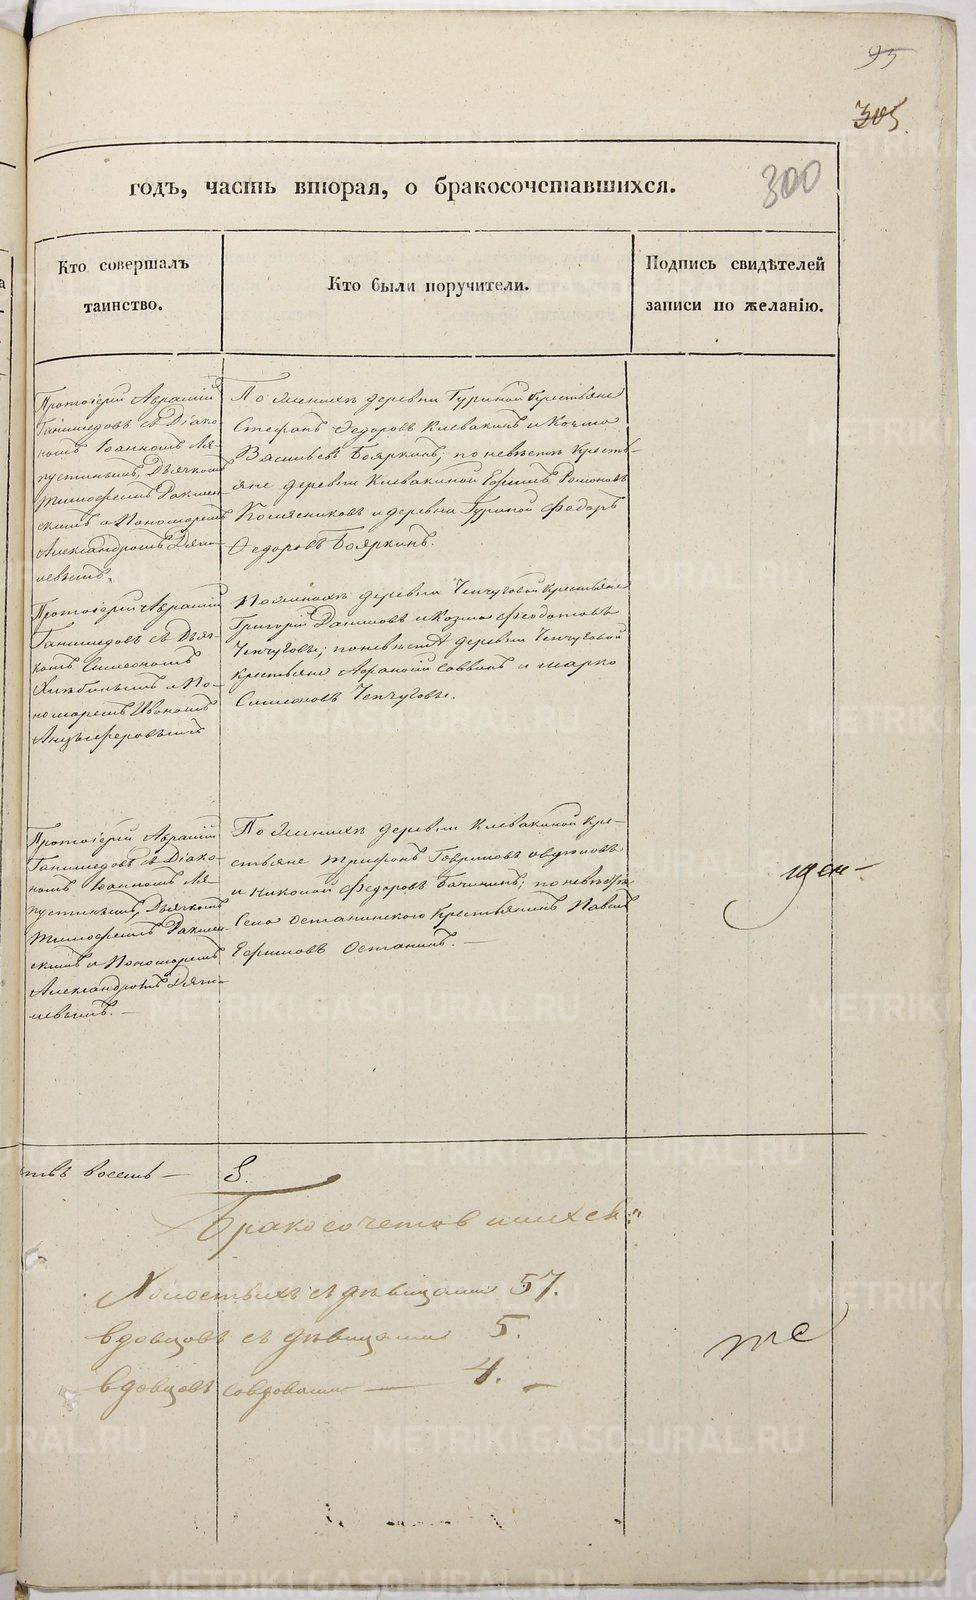 95
305
300
годъ, часть вторая, о бракосочетавшихся.
Кто совершалъ
таинство.
Кто были поручители.
Подпись свидѣтелей
записи по желанію.
Протоіерей Аврамій
Ганимедовъ съ Діако
номъ Іоанномъ Ля-
пустинымъ, Дьячкомъ
Тимофеемъ
скимъ и Пономаремъ
Александромъ Дяги-
левымъ.
По Женихѣ деревни Гуриной крестьяне
Стефанъ Федоровъ Клевакинъ и Козма
Васильевъ Бояркинъ; по невѣстѣ кресть-
яне деревни Клевакиной Ефимъ
и деревни Гуриной Федоръ
Федоровъ Бояркинъ.
Протоіерей Аврамій
Ганимедовъ съ Дьяч-
комъ Симеономъ
и По-
номаремъ Иваномъ
По Женихѣ деревни Чепчуговой крестьяне
Григорій Даниловъ и Козма Федотовъ
Чепчуговы; по невѣстѣ деревни Чепчуговой
крестьяне Афанасій Саввинъ и Марко
Симеоновъ Чепчуговы.
Протоіерей Аврамій
Ганимедовъ съ Діако-
номъ Іоанномъ Ля-
пустинымъ, Дьячкомъ
Тимофеемъ
скимъ и Пономаремъ
Александромъ Дяги-
левымъ. —
По Женихѣ деревни Клевакиной кре-
стьяне Трифонъ Гавриловъ
и Николай Федоровъ Бачининъ; по невѣстѣ
Села Останинскаго Крестьянинъ Павелъ
Ефимовъ Останинъ. —
восемь — 8.
Бракосочетавшихся:
Холостыхъ съ дѣвицами 57.
вдовцовъ съ дѣвицами 5.
вдовцовъ со вдовами — 4. —
METRIKI.GASO-URAL.RU